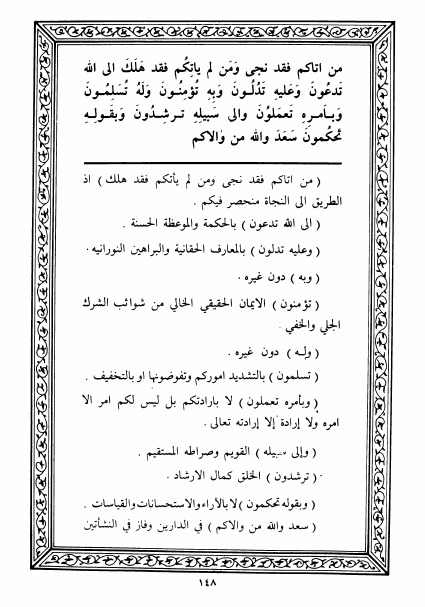 من اتاكم فقد نجى وَمَن لم ياتِكُم فقد هَلَكَ الى الله
تَدعُونَ وَعليهِ تَدُلُّونَ وَبِهِ تُؤمِنُونَ وَلَهُ تُسلِمُونَ
وَبأمرِهِ تَعمَلوُنَ والى سَبيلِهِ ترشِدُونَ وَبقَولِهِ
تَحكُمونَ سَعَدَ والله من والاكم
( من اتاكم فقد نجى ومن لم يأتكم فقد هلك ) اذ
الطريق الى النجاة منحصر فيكم .
( الى الله تدعون ) بالحكمة والموعظة الحسنة .
( وعليه تدلون ) بالمعارف الحقانية والبراهين النورانيه .
( وبه ) دون غيره .
( تؤمنون ) الايمان الحقيقي الخالي من شوائب الشرك
الجلي والخفي .
( وله ) دون غيره .
( تسلمون ) بالتشديد اموركم وتفوضونها او بالتخفيف .
( وبأمره تعملون ) لا بارادتكم بل ليس لكم امر الا
امره ولا إرادة إلا إرادته تعالى .
( وإلى سبيله ) القويم وصراطه المستقيم .
( ترشدون ) الخلق كمال الارشاد .
( وبقوله تحكمون ) لا بالآراء والاستحسانات والقياسات .
( سعد والله من والاكم ) في الدارين وفاز في النشأتين
١٤٨